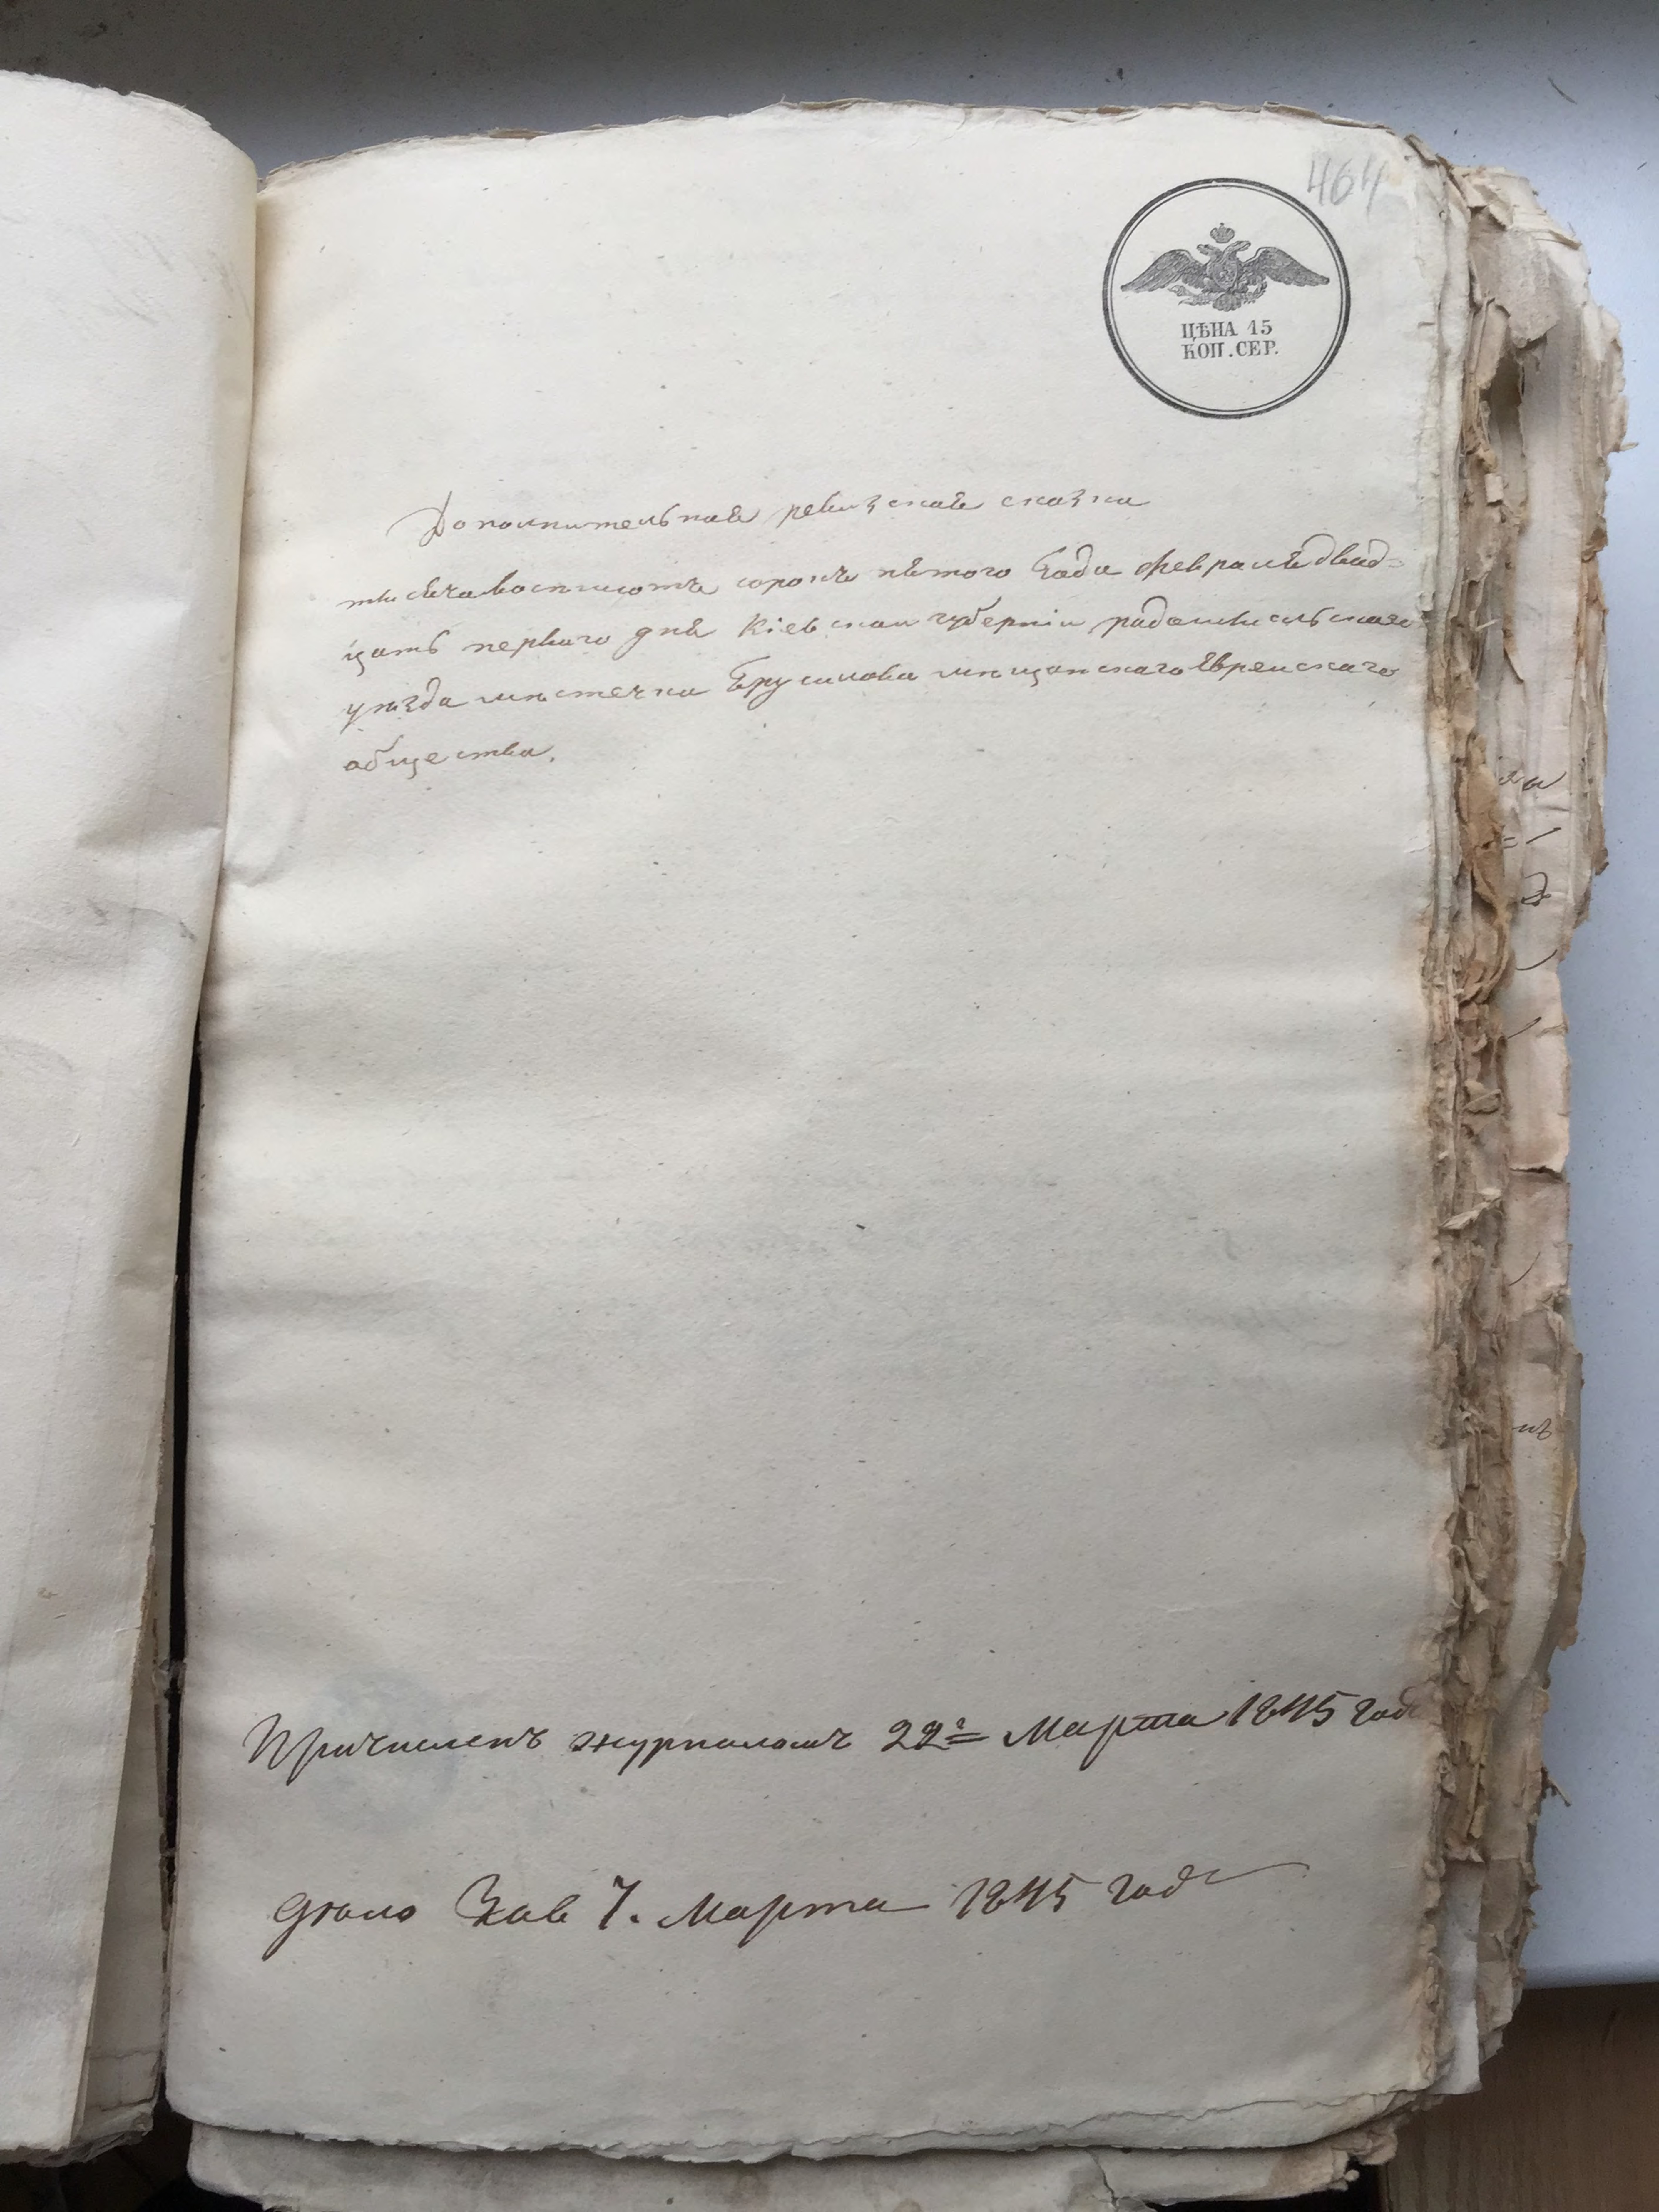 464
ЦѢНА 15
КОП. СЕР.
Дополнительная ревизская сказка
тысяча восемьсотъ сорокъ пятого Года февраля двад-
цать первого дня Кіевской губерніи радомысльскаго
уѣзда мѣстечка Брусилова мѣщанскаго Еврейскаго
общества.
Причисленъ журналомъ 22г Марта 1845 года
7. Марта 1845 года